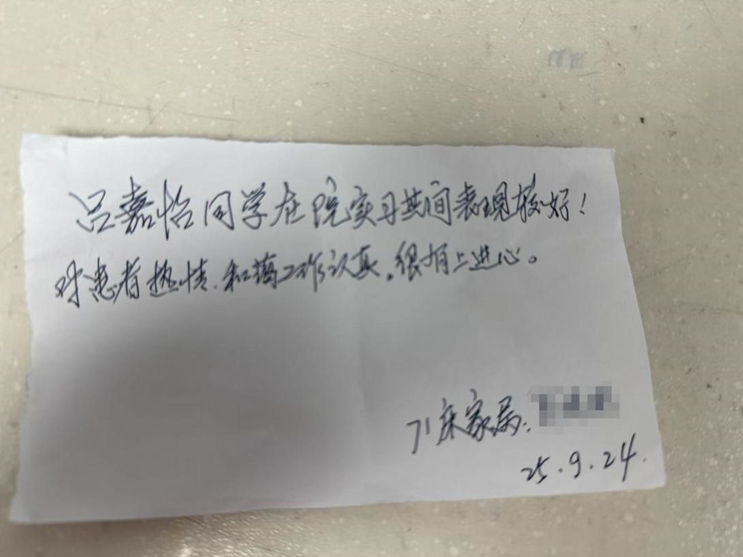 吕嘉怡同学在院实习其间表现较好!
对患者热情.和蔼工作认真。很有上进心。
71床家属:
25.9.24.